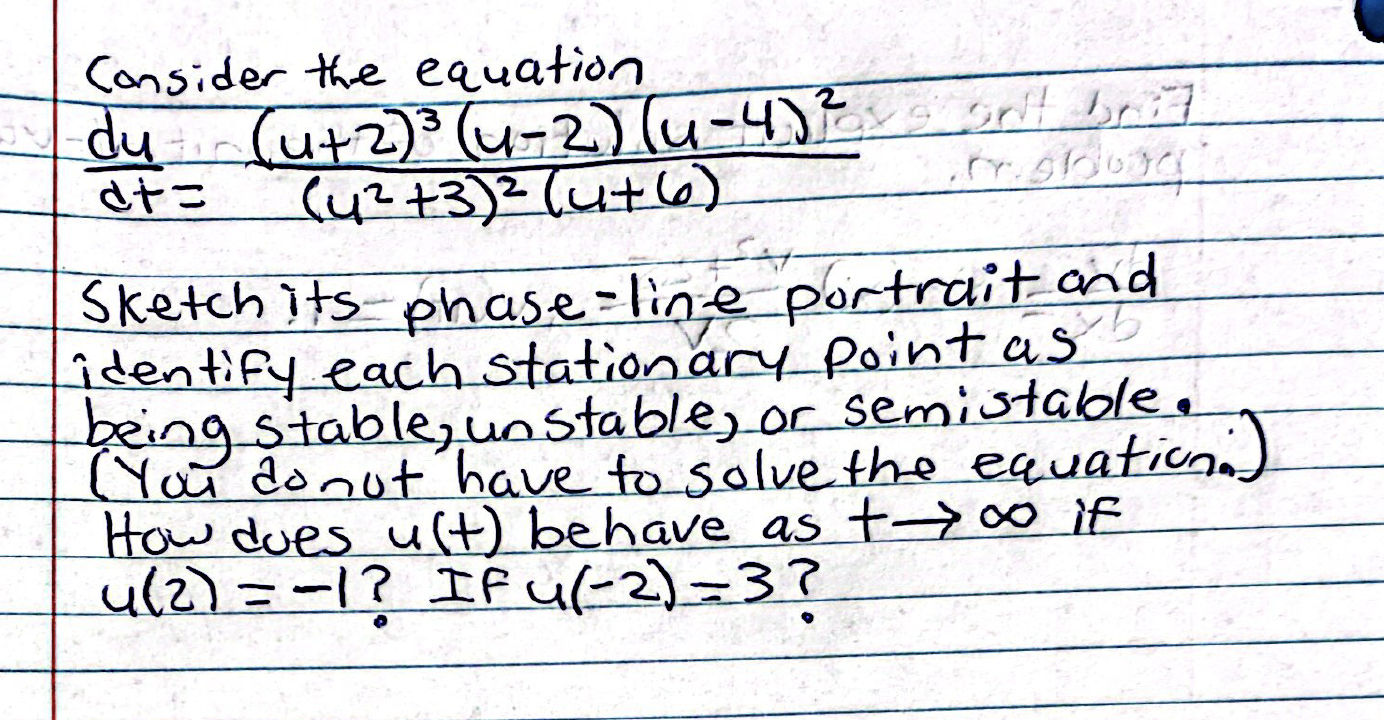 Consider the equation
du/dt = (u+2)³(u-2)(u-4)² / (u²+3)²(u+6)
Sketch its phase-line portrait and
identify each stationary point as
being stable, unstable, or semistable.
(You do not have to solve the equation.)
How does u(t) behave as t→∞ if
u(2)=-1? If u(-2)=3?